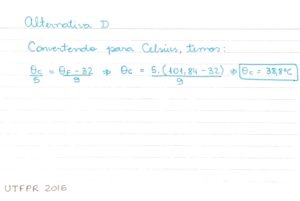 Alternativa D
Convertendo para Celsius, temos:
θc/5 = θF - 32/9 ⇒ θc = 5.(101,84 - 32)/9 ⇒ θc = 38,8°C
UTFPR 2016